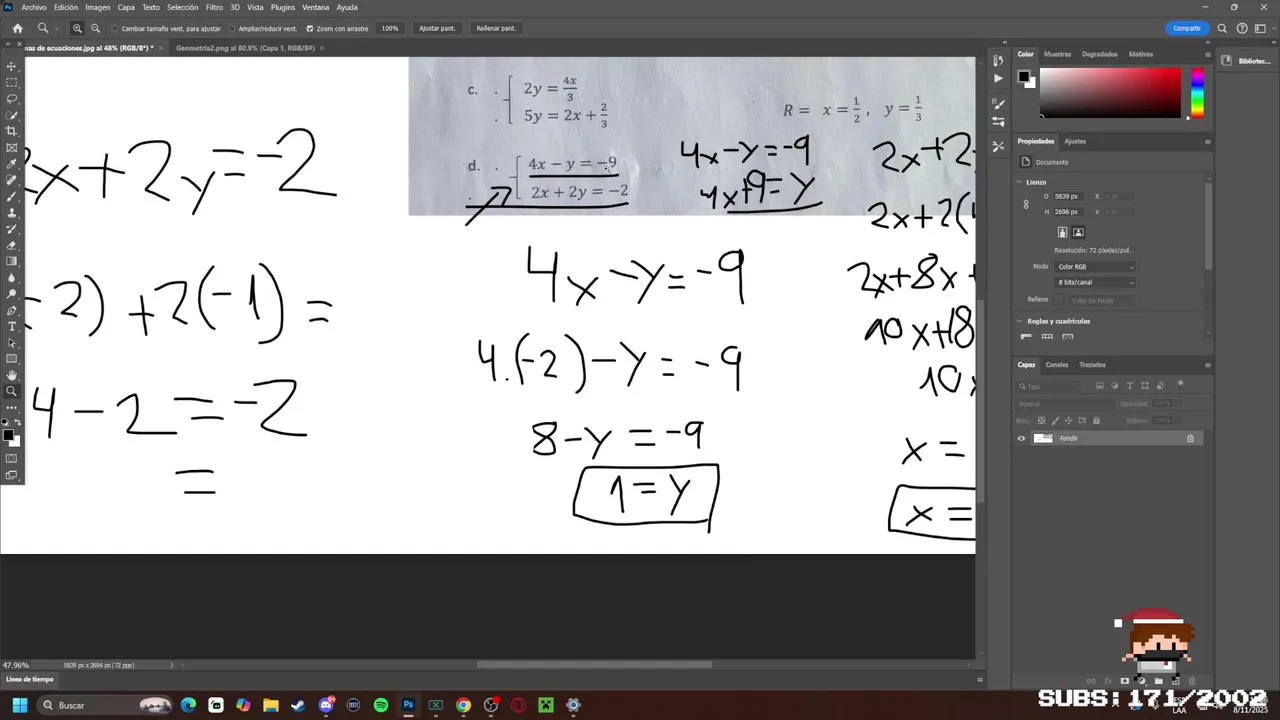 Archivo Edición Imagen Capa Texto Selección Filtro 3D Vista Plugins Ventana Ayuda
Cambiar tamaño vent. para ajustar Ampliar/reducir vent. Zoom con arrastre 100% Ajustar pant. Rellenar pant. Compartir
nas de ecuaciones.jpg al 48% (RGB/8*) * × Geometria2.png al 80.9% (Capa 1, RGB/8#) ×
c. 2y = 4x/3
5y = 2x + 2/3
R = x = 1/2, y = 1/3
d. 4x − y = −9
2x + 2y = −2
4x-y=-9
4x+9=y
2x+2y=-2
-2) +2(-1) =
4-2=-2
=
4x-y=-9
4.(-2)-y=-9
8-y=-9
1=y
2x+2
2x+2(
2x+8x+
10x+18
10x
x=
x=
Color Muestras Degradados Motivos
Bibliotec...
Propiedades Ajustes
Documento
Lienzo
O 5839 px X
H 2696 px Y
Resolución: 72 píxeles/pul...
Modo Color RGB
8 bits/canal
Relleno Color de fondo
Reglas y cuadrículas
Capas Canales Trazados
Tipo
Normal Opacidad: 100%
Bloq.: 100%
Fondo
47.96% 5839 px x 2696 px (72 ppp)
Línea de tiempo
SUBS:171/2002
Buscar
LAA 8/11/2025